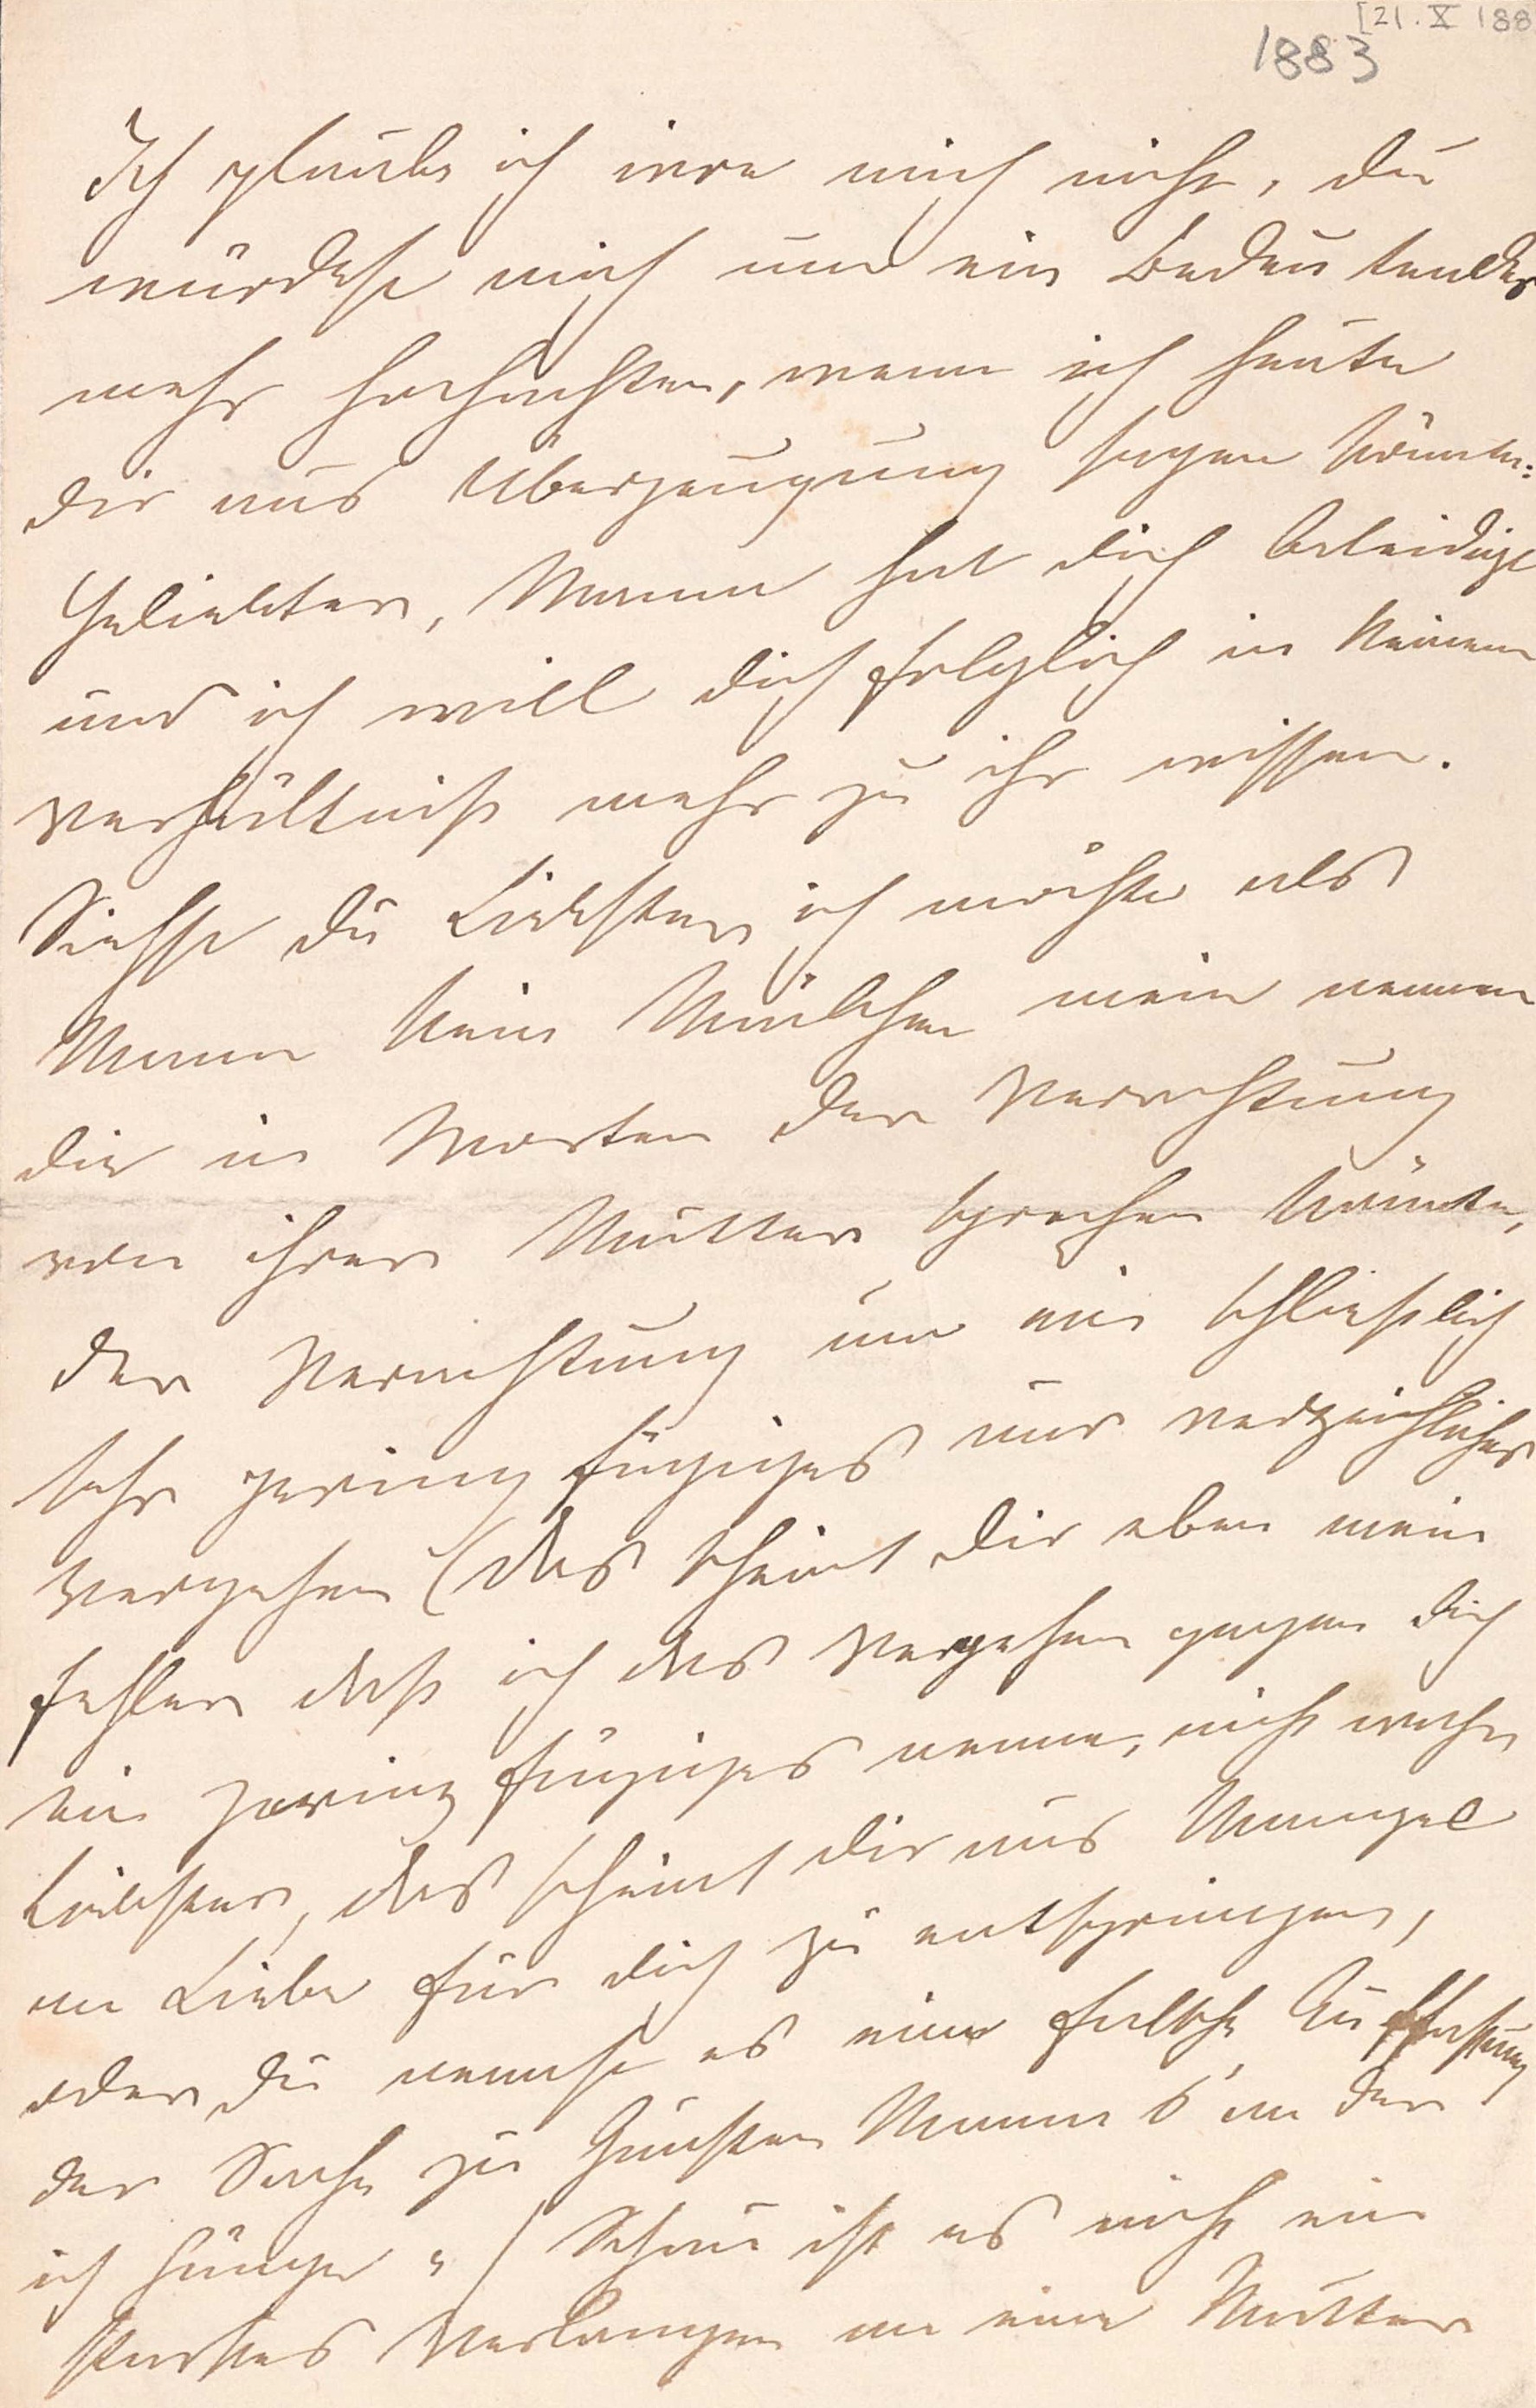 [21. X 188
1883
Ich glaube ich irre mich nicht, du
würdest mich um ein Bedeutendes
mehr hochachten, wenn ich heute
dir aus Überzeugung sagen könnte:
Geliebter, Mama hat dich beleidigt
und ich will dich folglich in keinem
Verhältniß mehr zu ihr wissen.
Siehst du Liebster, ich möchte als
Mann kein Mädchen mein nennen
die in Worten der Verachtung
von ihrer Mutter sprechen könnte,
der Verachtung um ein schließlich
sehr geringfügiges und verzeihliches
Vergehen (das scheint dir eben mein
Fehler daß ich das Vergehen gegen dich
ein geringfügiges nenne, nicht wahr
Liebster, das scheint dir aus Mangel
an Liebe für dich zu entspringen,
oder du nennst es eine falsche Auffassung
der Sache zu Gunsten Mama's an der
ich hänge.) Schau ist es nicht ein
starkes Verlangen an eine Mutter